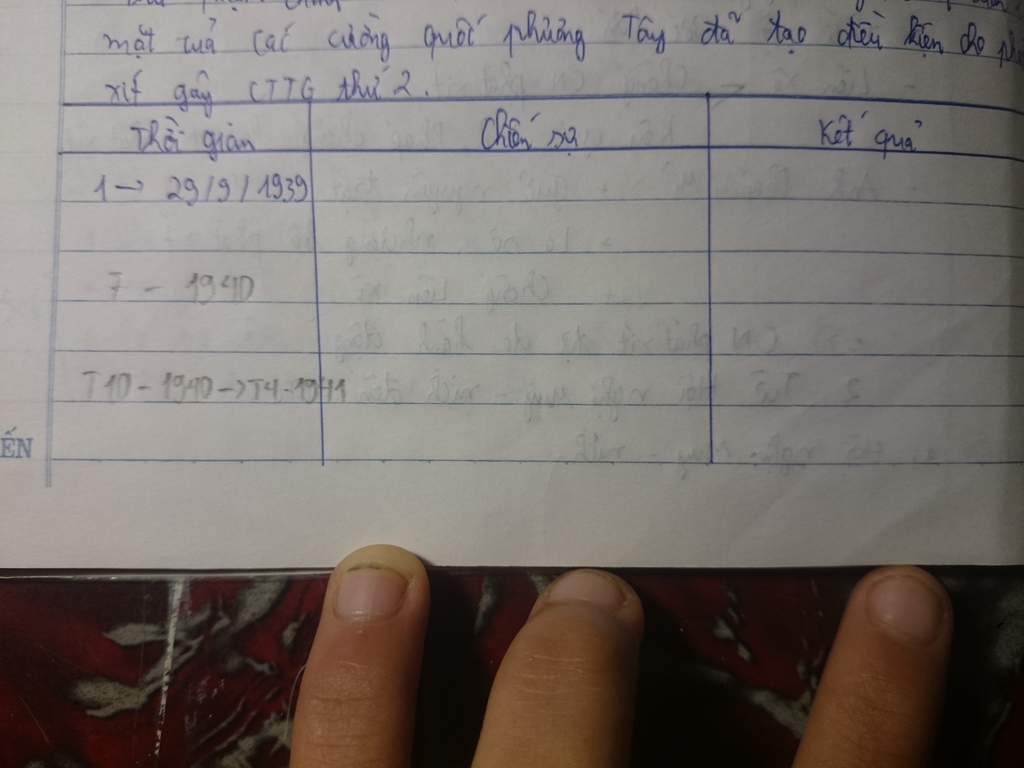 mặt của các cường quốc phương Tây đã tạo điều kiện cho
xít gây CTTG thứ 2.
Thời gian Chiến sự Kết quả
1 → 29/9/1939
7 - 1940
T10 - 1940 -> T4-1941
ẾN